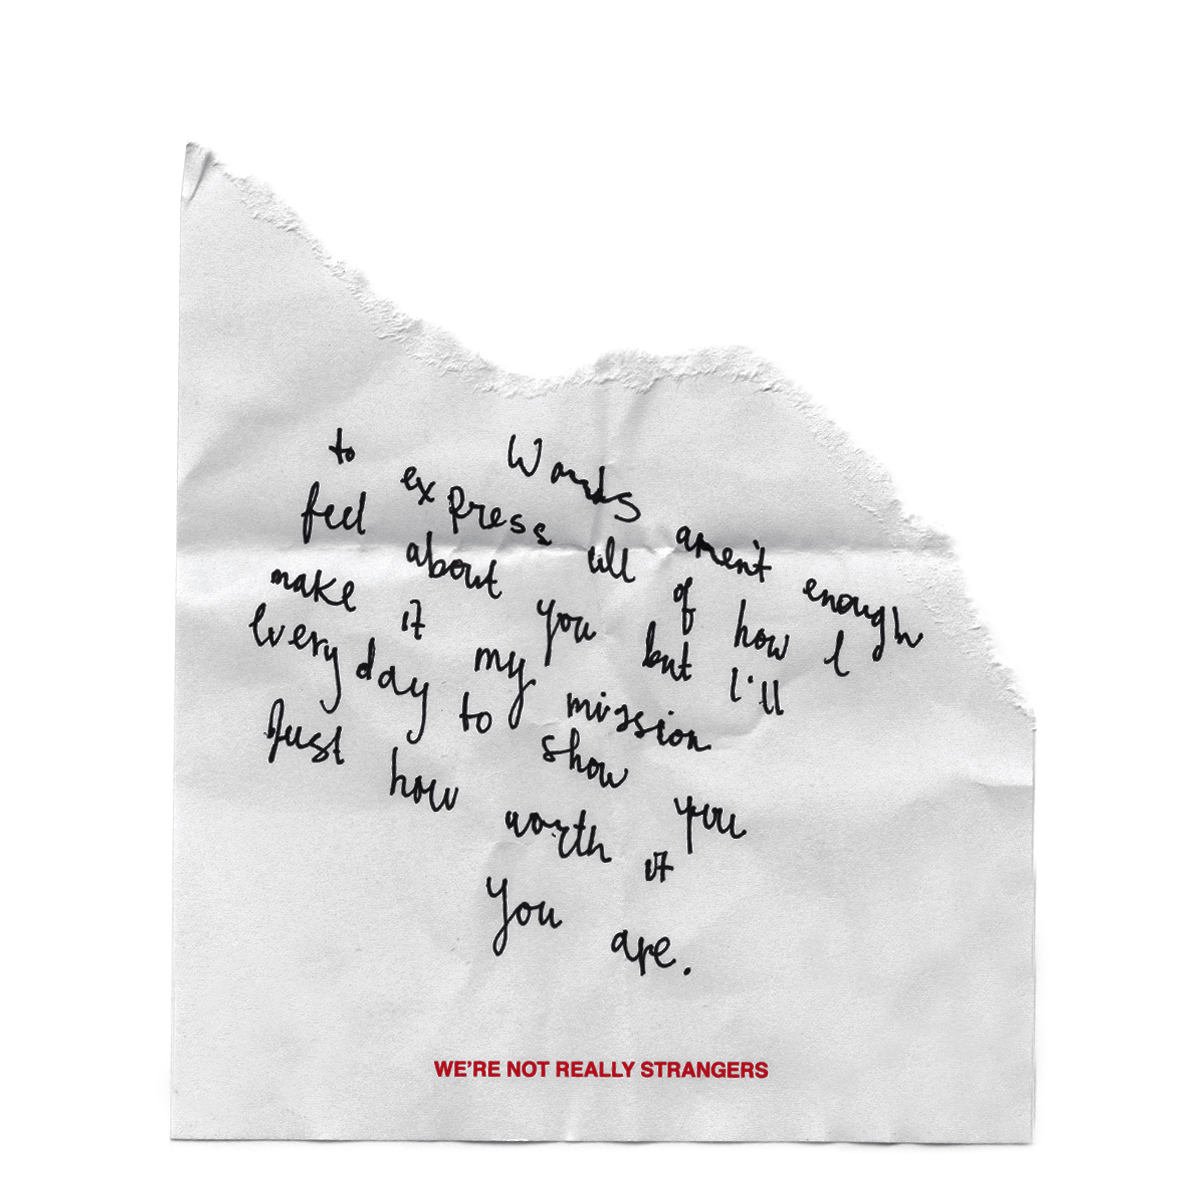 Words aren't enough
to express all of how I
feel about you but I'll
make it my mission
every day to show you
Just how worth it
you are.
WE'RE NOT REALLY STRANGERS